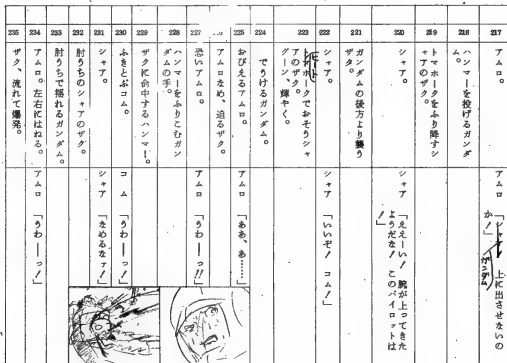 217
アムロ。
アムロ 「シャア！ 上に出させないの
か！」
ガンダム
218
ハンマーを投げるガンダ
ム。
219
トマホークをふり降すシ
ャアのザク。
220
シャア。
シャア 「ええーい！ 腕が上ってきた
ようだな！ このパイロットは
！」
221
ガンダムの後方より襲う
ザク。
222
シャア。
シャア 「いいぞ！ コム！」
223
ヒート
トマホークでおそうシャ
アのザク。
グーン、輝やく。
224
でうけるガンダム。
225
おびえるアムロ。
アムロ 「ああ、あ……」
アムロなめ、迫るザク。
227
恐いアムロ。
アムロ 「うわーっ!!」
228
ハンマーをふりこむガン
ダムの手。
229
ザクに命中するハンマー。
230
ふきとぶコム。
コム 「うわーっ！」
231
シャア。
シャア 「なめるなァ！」
232
肘うちのシャアのザク。
233
肘うちで揺れるガンダム。
234
アムロ。左右にはねる。
アムロ 「うわーっ！」
235
ザク、流れて爆発。